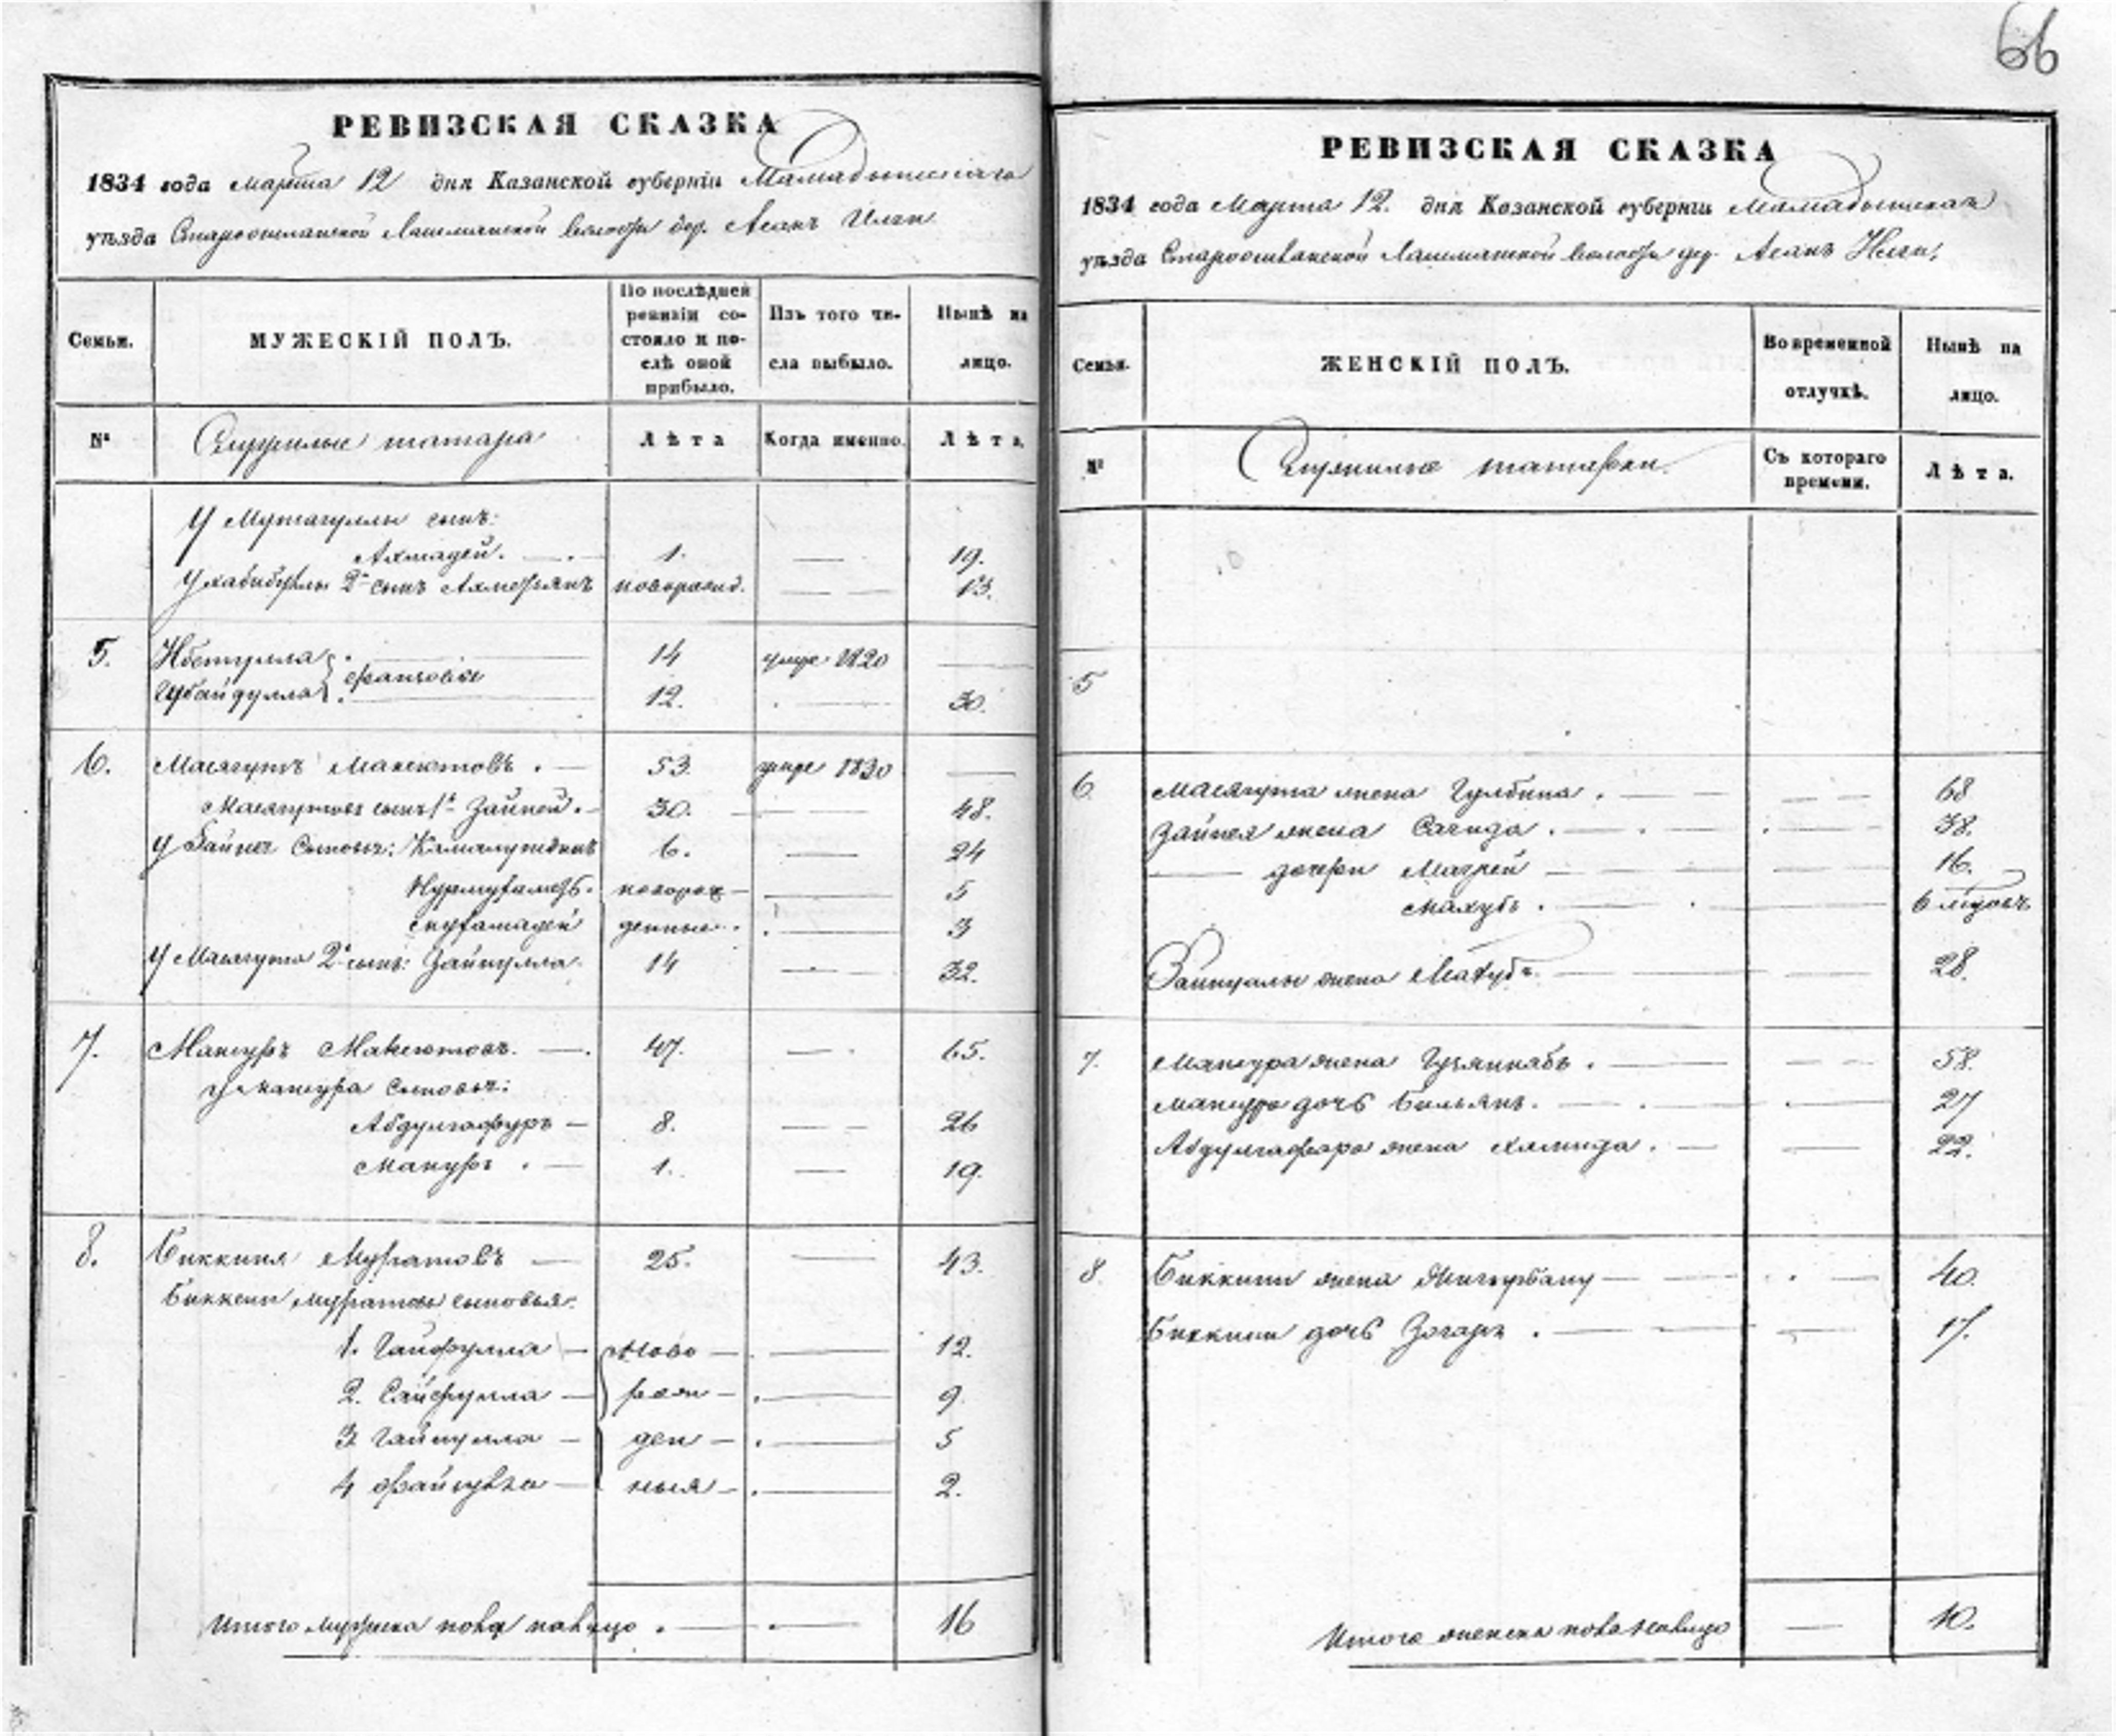 66
РЕВИЗСКАЯ СКАЗКА
1834 года марта 12 дня Казанской губерніи Мамадышскаго
уѣзда Лашманской волости дер. Асанъ Илги
Семьи.
МУЖЕСКІЙ ПОЛЪ.
По послѣдней ревизіи состояло и послѣ оной прибыло.
Изъ того числа выбыло.
Нынѣ на лицо.
№
Служилые татара
Лѣта
Когда именно.
Лѣта.
У Мутагуллы сынъ:
Ахмадей. 1. 19.
У Хабибуллы 2й сынъ Ахмеръянъ новорожд. 13.
5. 14 умре 1820
Губайдулла 12. 30.
6. Масягутъ Максютовъ. 53. умре 1830
Масягутовъ сынъ 1й Зайней. 30. 48.
У Зайнея сыновья: Камалутдинъ 6. 24
Нурмухаметъ. новорож 5
денные. 3
У Масягута 2й сынъ: Зайнулла 14 32.
7. Мансуръ Максютовъ. 47. 65.
У Мансура сыновья:
Абдулгафуръ 8. 26
1. 19.
8. Биккиня Муратовъ 25. 43.
Биккини Муратова сыновья:
1. Гайфулла ново 12.
2. Сайфулла рож 9.
3. ден 5
4 ныя 2.
Итого мужеска пола налицо. 16
РЕВИЗСКАЯ СКАЗКА
1834 года Марта 12. дня Казанской губерніи Мамадышскаго
уѣзда Лашманской волости дер. Асанъ Илги
Семьи.
ЖЕНСКІЙ ПОЛЪ.
Во временной отлучкѣ.
Нынѣ на лицо.
№
Служилые татарки.
Съ котораго времени.
Лѣта.
5
6 Масягута жена Гулбина. 68
Зайнея жена Сагида. 38.
дочери 16.
Махубъ. 6 мѣсяцъ
Зайнуллы жена Махубъ. 28.
7. Мансура жена 58.
Мансура дочь 27
Абдулгафара жена Хамида. 22.
8 Биккини жена 40.
Биккини дочь 17.
Итого женска пола налицо 10.